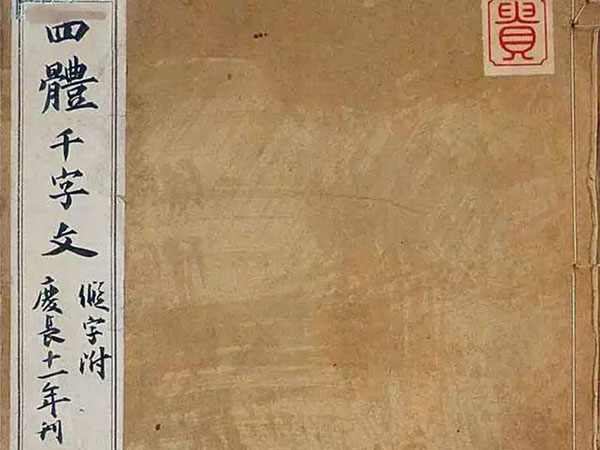 四體千字文
假字附
慶長十一年刊
貴